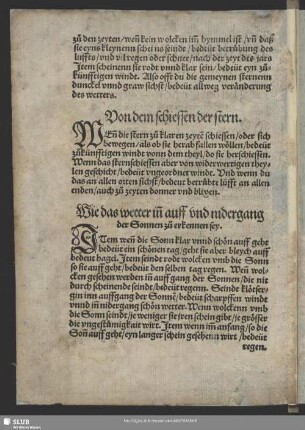 zů den zeyten/ weñ kein wolcken im̃ hymmel ist / vñ das
sie eyns kleynenn schei ns seinde / bedeüt betrübung des
luffts / vnd vil regen oder schnee / nach der zeyt des jars
Item scheinenn sie rodt vnnd klar sein / bedeüt eyn zů-
künfftigen winde. Also offt du die gemeynen sternenn
dunckel vnnd graw sichst / bedeüt allweg veränderung
des wetters.
Von dem schiessen der stern.
WEñ die stern zů klaren zeytẽ schiessen / oder sich
bewegen / als ob sie herab fallen wöllen / bedeüt
zůkünfftigen windt vonn dem theyl / do sie herschiessen.
Wenn das sternschiessen aber von widerwertigen they
len geschicht / bedeüt vngeordnet windt. Vnd wenn du
das an allen orten sichst / bedeüt betrübt lüfft an allen
enden / auch zů zeyten donner vnd blixen.
Wie das wetter im̃ auff vnd nidergang
der Sonnen zů erkennen sey.
ITem weñ die Sonn klar vnnd schön auff geht
bedeüt ein schönen tag / geht sie aber bleych auff
bedeüt hagel. Item seinde rode wolcken vmb die Sonn
so sie auff geht / bedeüt den selben tag regen. Weñ wol-
cken gesehen werden im̃ auffgang der Sonnen / die nit
durch scheinende seinde / bedeüt regenn. Seinde klötzer-
gin inn auffgang der Sonnẽ / bedeüt scharpffen windt
vnnd im̃ nidergang schön wetter. Wenn wolckenn vmb
die Sonn seindt / je weniger sie jren schein gibt / je grösser
die vngestümigkait wirt. Item wenn im̃ anfang / so die
Soñ auff geht / eyn langer schein gesehenn wirt / bedeüt
regen.
SLUB
Wir führen Wissen.